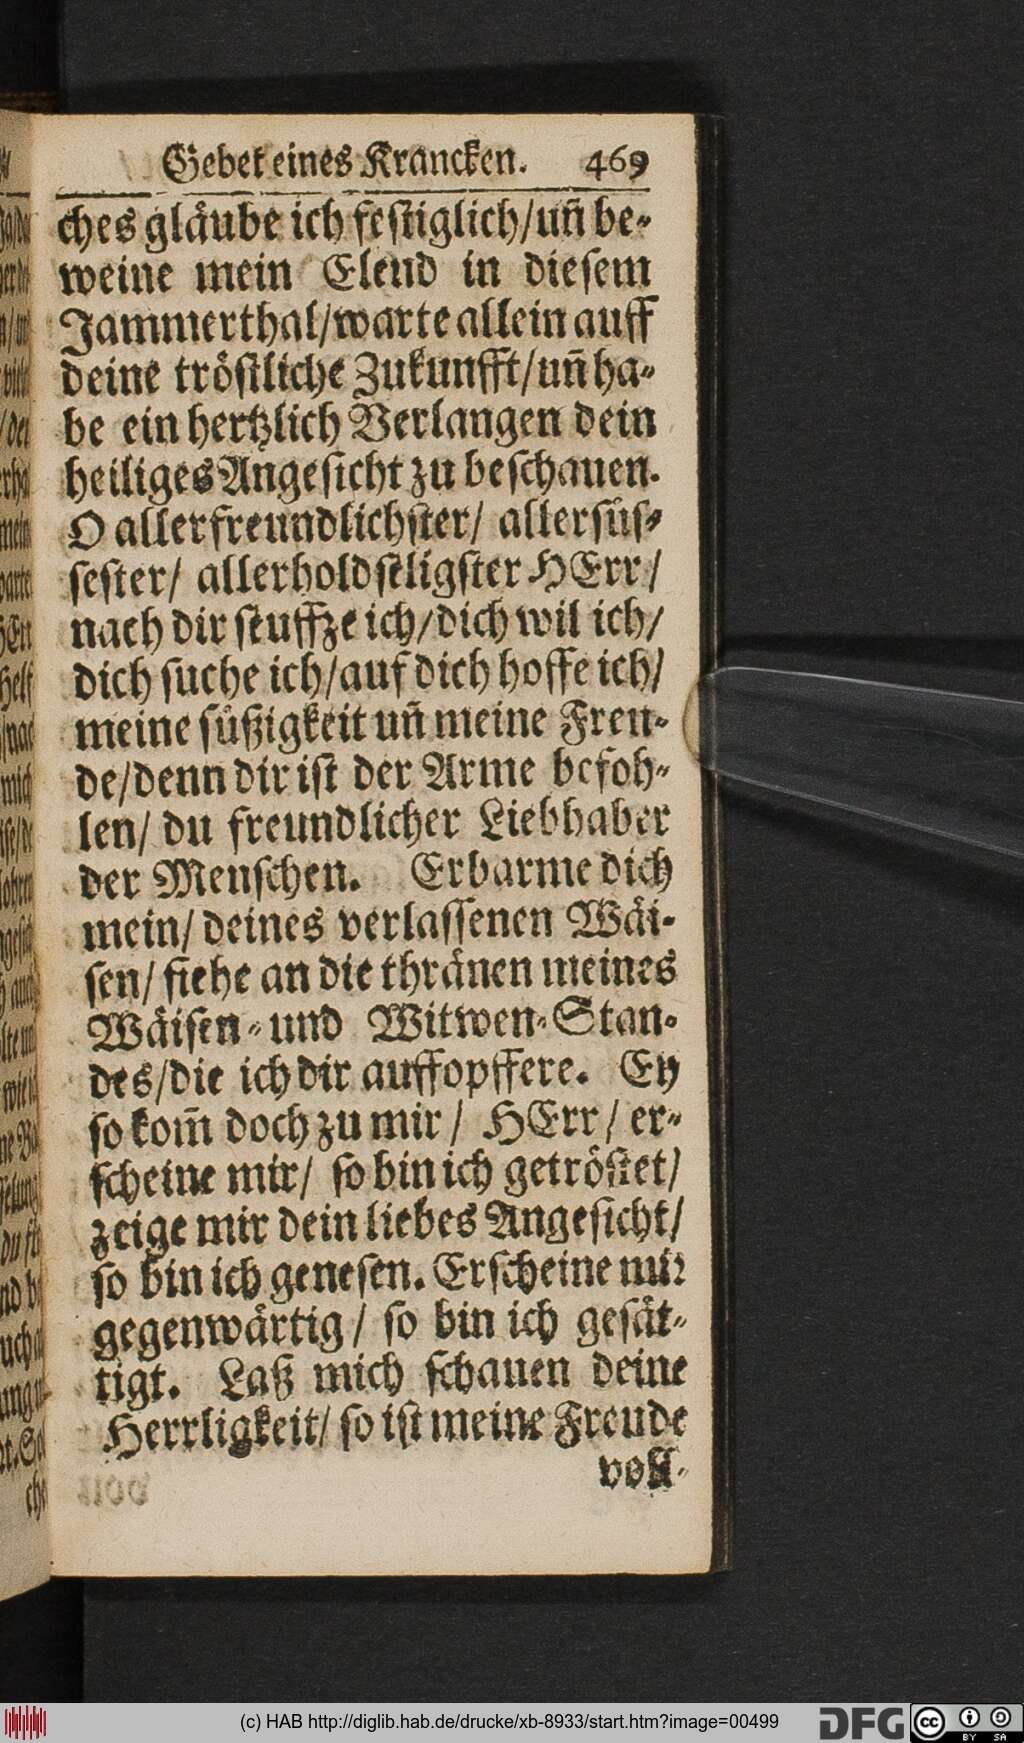 Gebet eines Krancken. 469
ches gläube ich festiglich/un̄ be-
weine mein Elend in diesem
Jammerthal/warte allein auff
deine tröstliche Zukunfft/un̄ ha-
be ein hertzlich Verlangen dein
heiliges Angesicht zu beschauen.
O allerfreundlichster/ allersüs-
sester/ allerholdseligster HErr/
nach dir seuffze ich/dich wil ich/
dich suche ich/auf dich hoffe ich/
meine süßigkeit un̄ meine Freu-
de/denn dir ist der Arme befoh-
len/ du freundlicher Liebhaber
der Menschen. Erbarme dich
mein/ deines verlassenen Wäi-
sen/ siehe an die thränen meines
Wäisen- und Witwen-Stan-
des/die ich dir auffopffere. Ey
so kom̄ doch zu mir/ HErr/ er-
scheine mir/ so bin ich getröstet/
zeige mir dein liebes Angesicht/
so bin ich genesen. Erscheine mir
gegenwärtig/ so bin ich gesät-
tigt. Laß mich schauen deine
Herrligkeit/ so ist meine Freude
voll-
(c) HAB http://diglib.hab.de/drucke/xb-8933/start.htm?image=00499
DFG cc BY SA